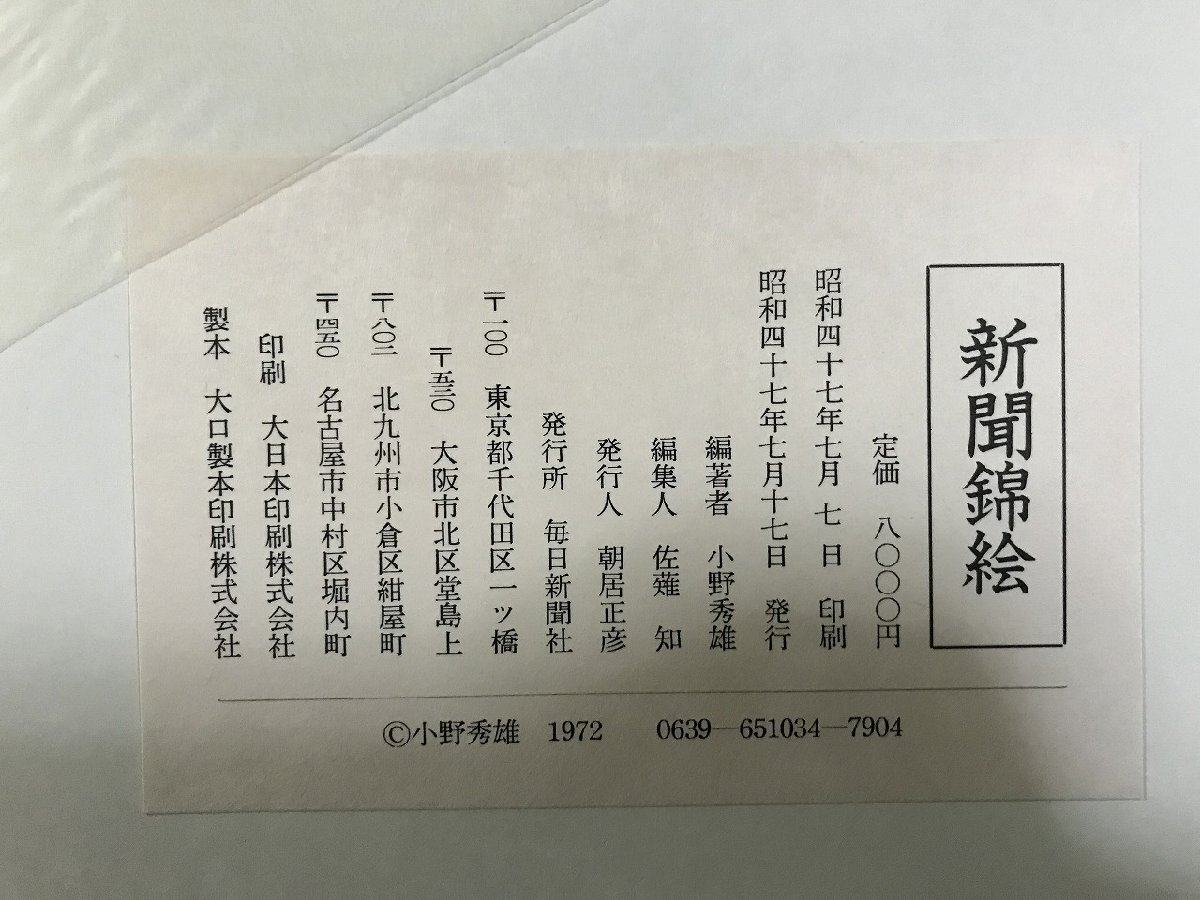 新聞錦絵
定価 八〇〇〇円
昭和四十七年七月 七 日 印刷
昭和四十七年七月十七日 発行
編著者 小野秀雄
編集人 佐薙 知
発行人 朝居正彦
発行所 毎日新聞社
〒一〇〇 東京都千代田区一ッ橋
〒五三〇 大阪市北区堂島上
〒八〇二 北九州市小倉区紺屋町
〒四五〇 名古屋市中村区堀内町
印刷 大日本印刷株式会社
製本 大口製本印刷株式会社
©小野秀雄 1972 0639―651034―7904